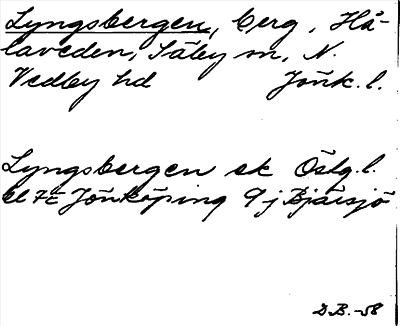 Lyngsbergen, berg, Hå-
laveden, Säby sn, N.
Vedbo hd Jönk. l.
Lyngsbergen ek Östg. l.
bl 72 Jönköping 9j Bjärsjö
D.B. -58